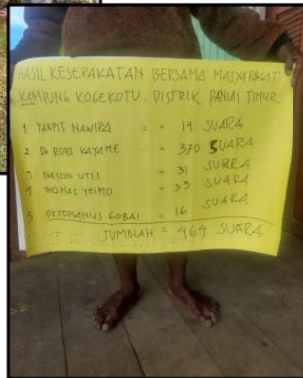 HASIL KESEPAKATAN BERSAMA MASYARAKAT
KAMPUNG KOGEKOTU. DISTRIK PANIAI TIMUR
1 YANPIT NAWIPA = = 14 SUARA
2 Dr ROBI KAYAME = 370 SUARA
3 NASON UTII = 31 SUARA
4 THOMAS YEIMO = 33 SUARA
5 OKTOPIANUS GOBAI = 16 SUARA
JUMBLAH = 464 SUARA